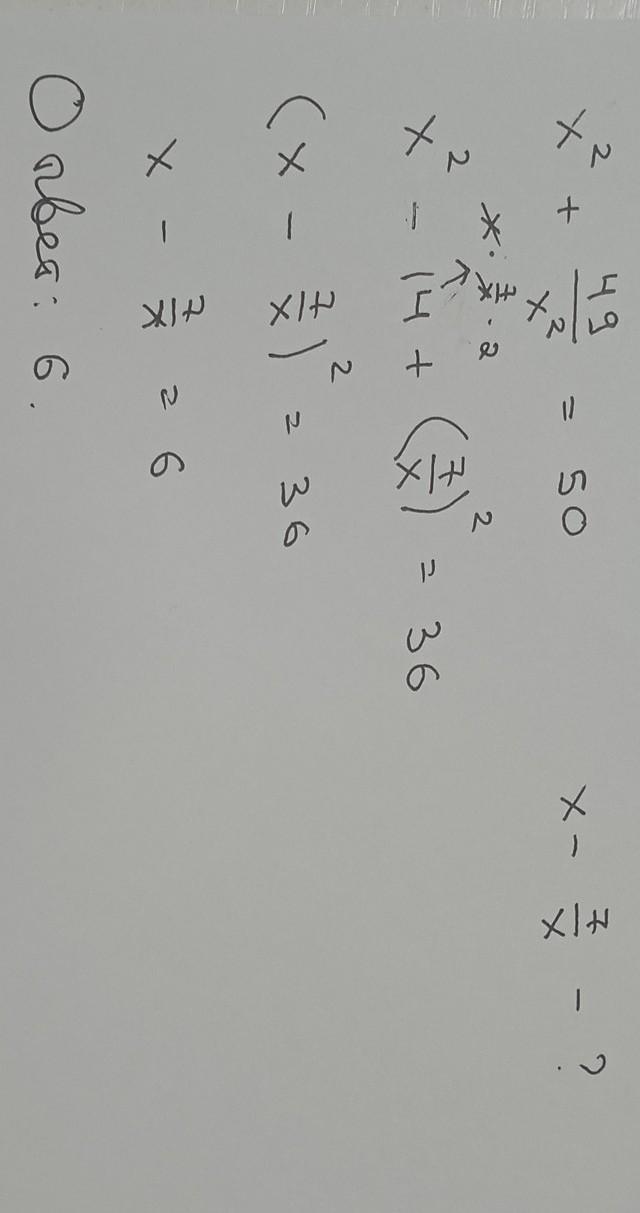 x² + 49/x² = 50 x - 7/x - ?
x · 7/x · 2
x² - 14 + (7/x)² = 36
(x - 7/x)² = 36
x - 7/x = 6
Ответ: 6.